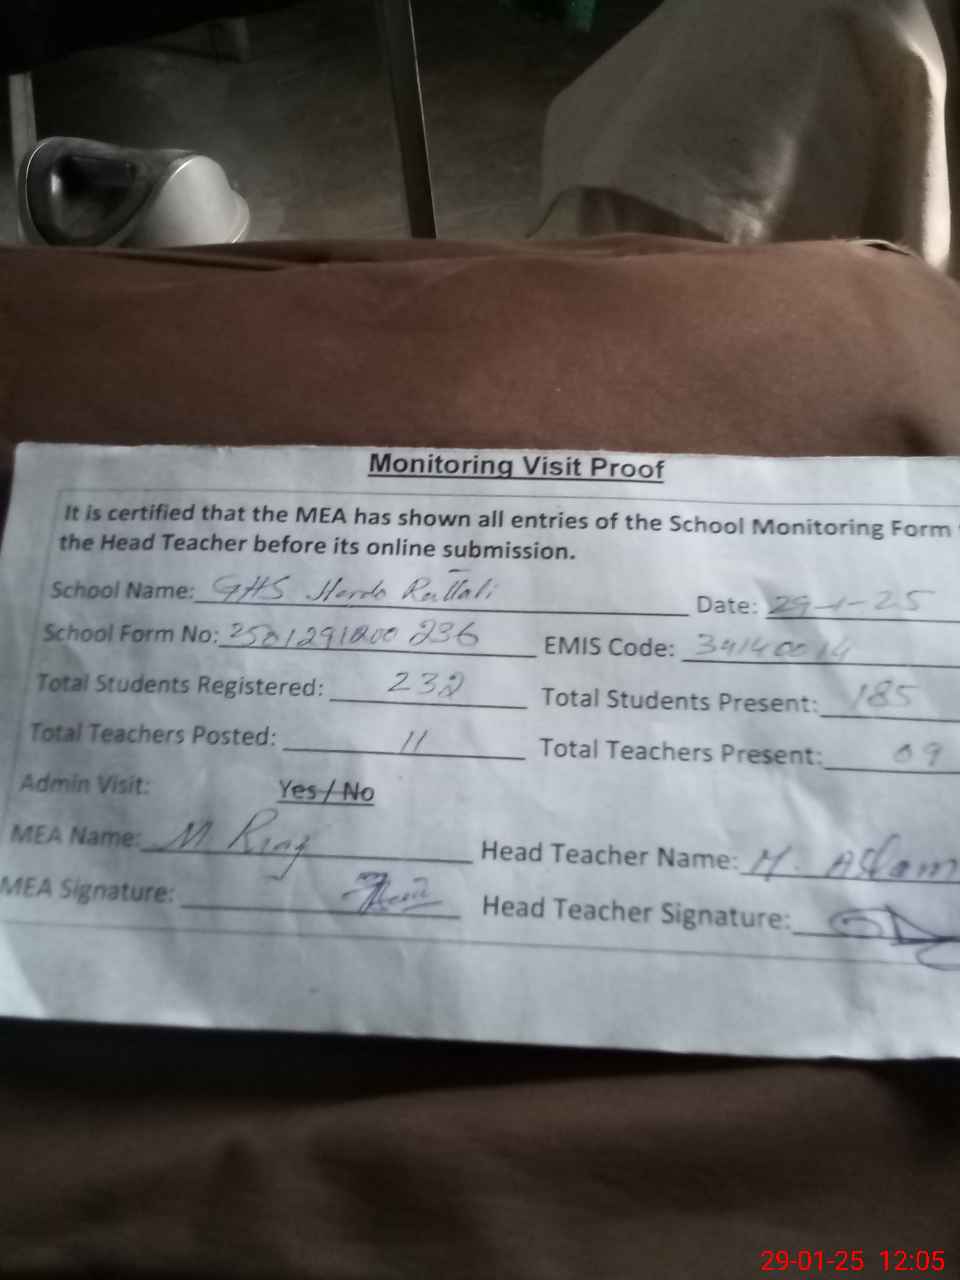 Monitoring Visit Proof
It is certified that the MEA has shown all entries of the School Monitoring Form
the Head Teacher before its online submission.
School Name: GHS Rattali Date: 29-1-25
School Form No: 2501291200236 EMIS Code: 34140014
Total Students Registered: 232 Total Students Present: 185
Total Teachers Posted: 11 Total Teachers Present: 09
Admin Visit: Yes / No
MEA Name: M. Riaz Head Teacher Name: M. Aslam
MEA Signature: Head Teacher Signature:
29-01-25 12:05